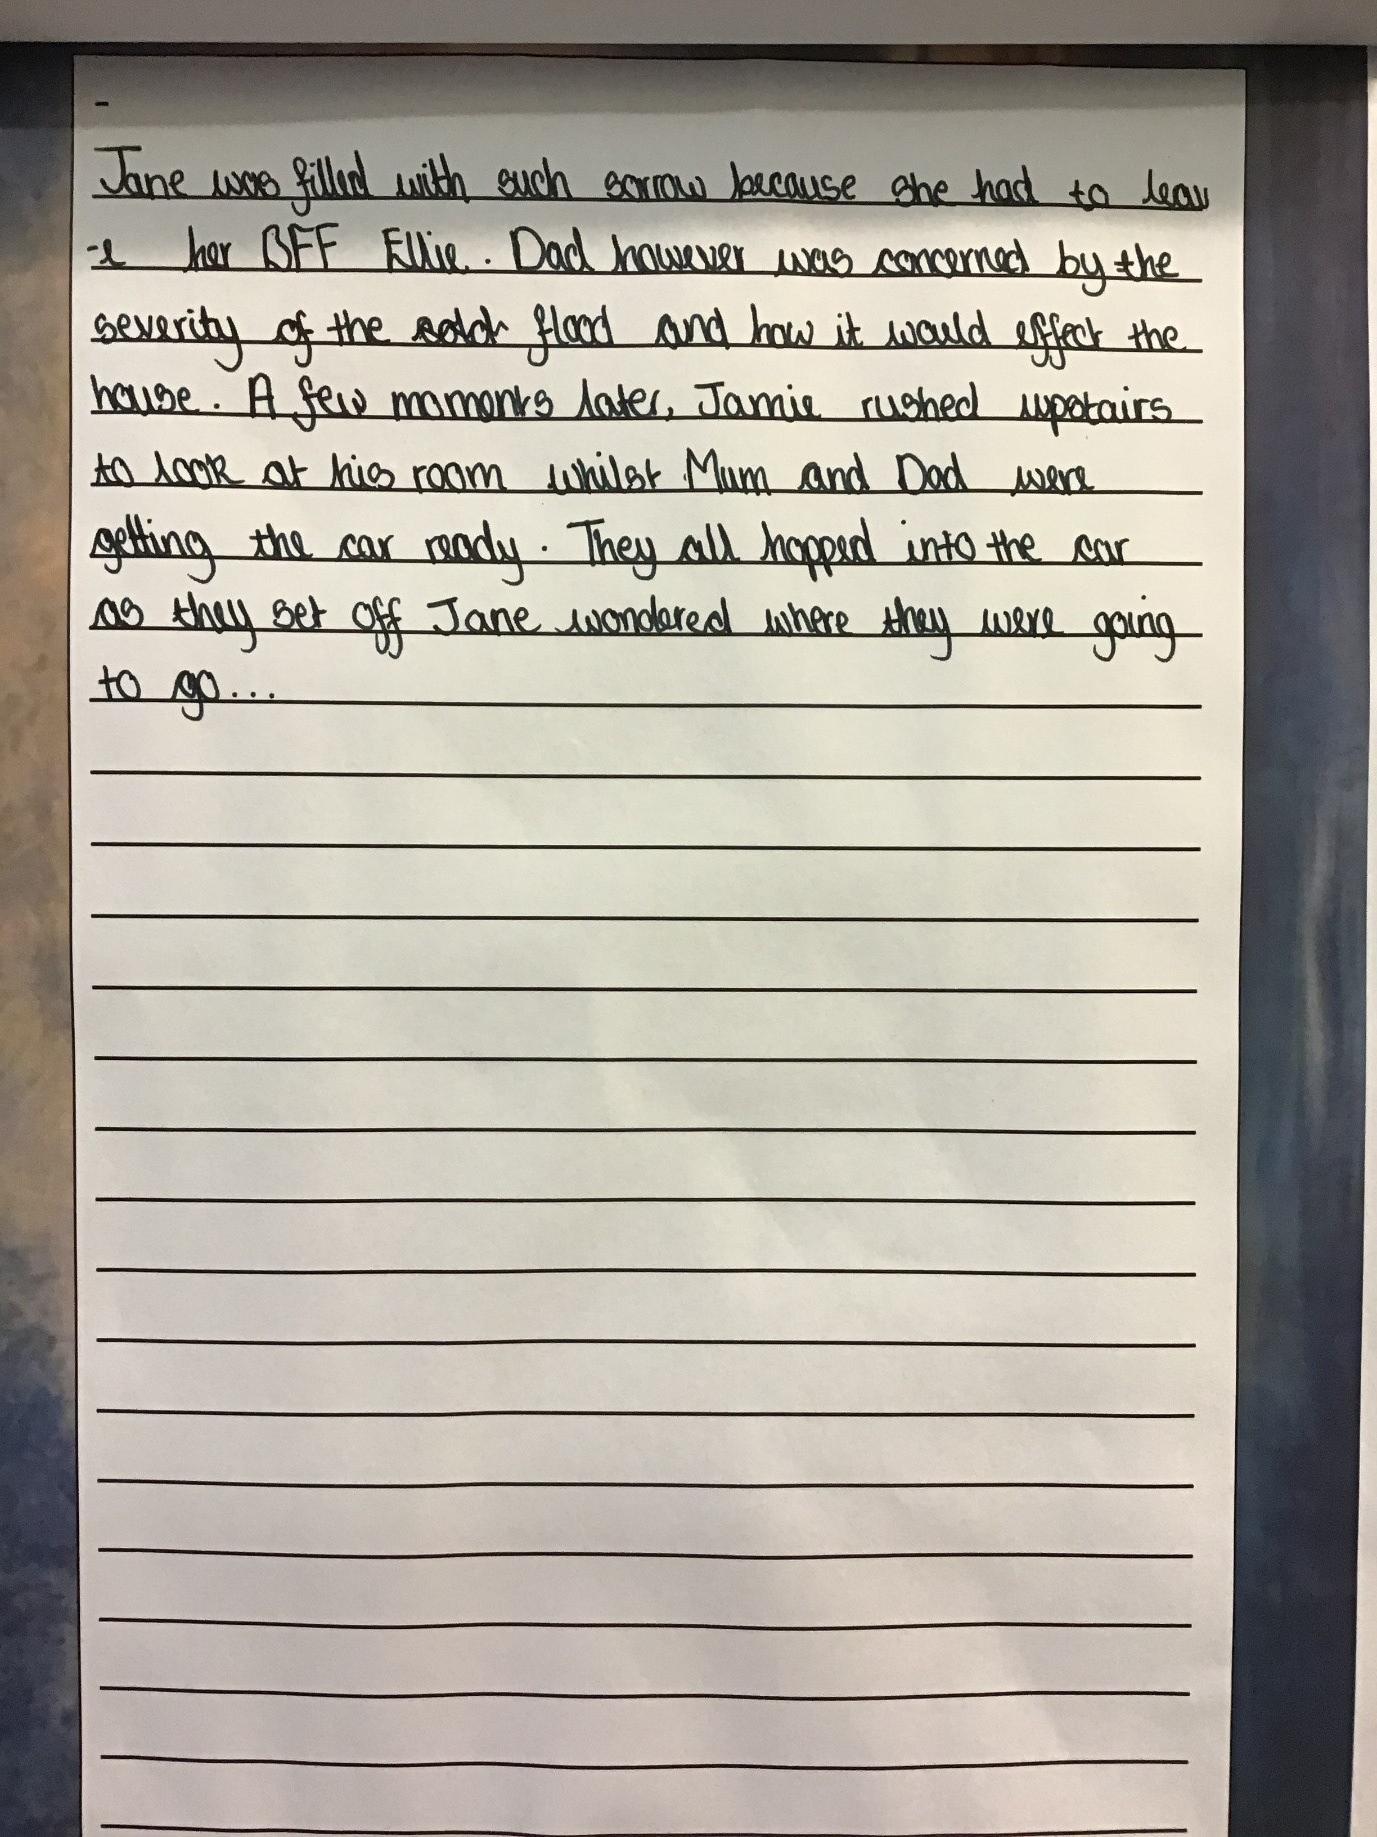 -
Jane was filled with such sorrow because she had to leav
-e her BFF Ellie. Dad however was concerned by the
severity of the flood and how it would effect the
house. A few moments later, Jamie rushed upstairs
to look at his room whilst Mum and Dad were
getting the car ready. They all hopped into the car
as they set off Jane wondered where they were going
to go...